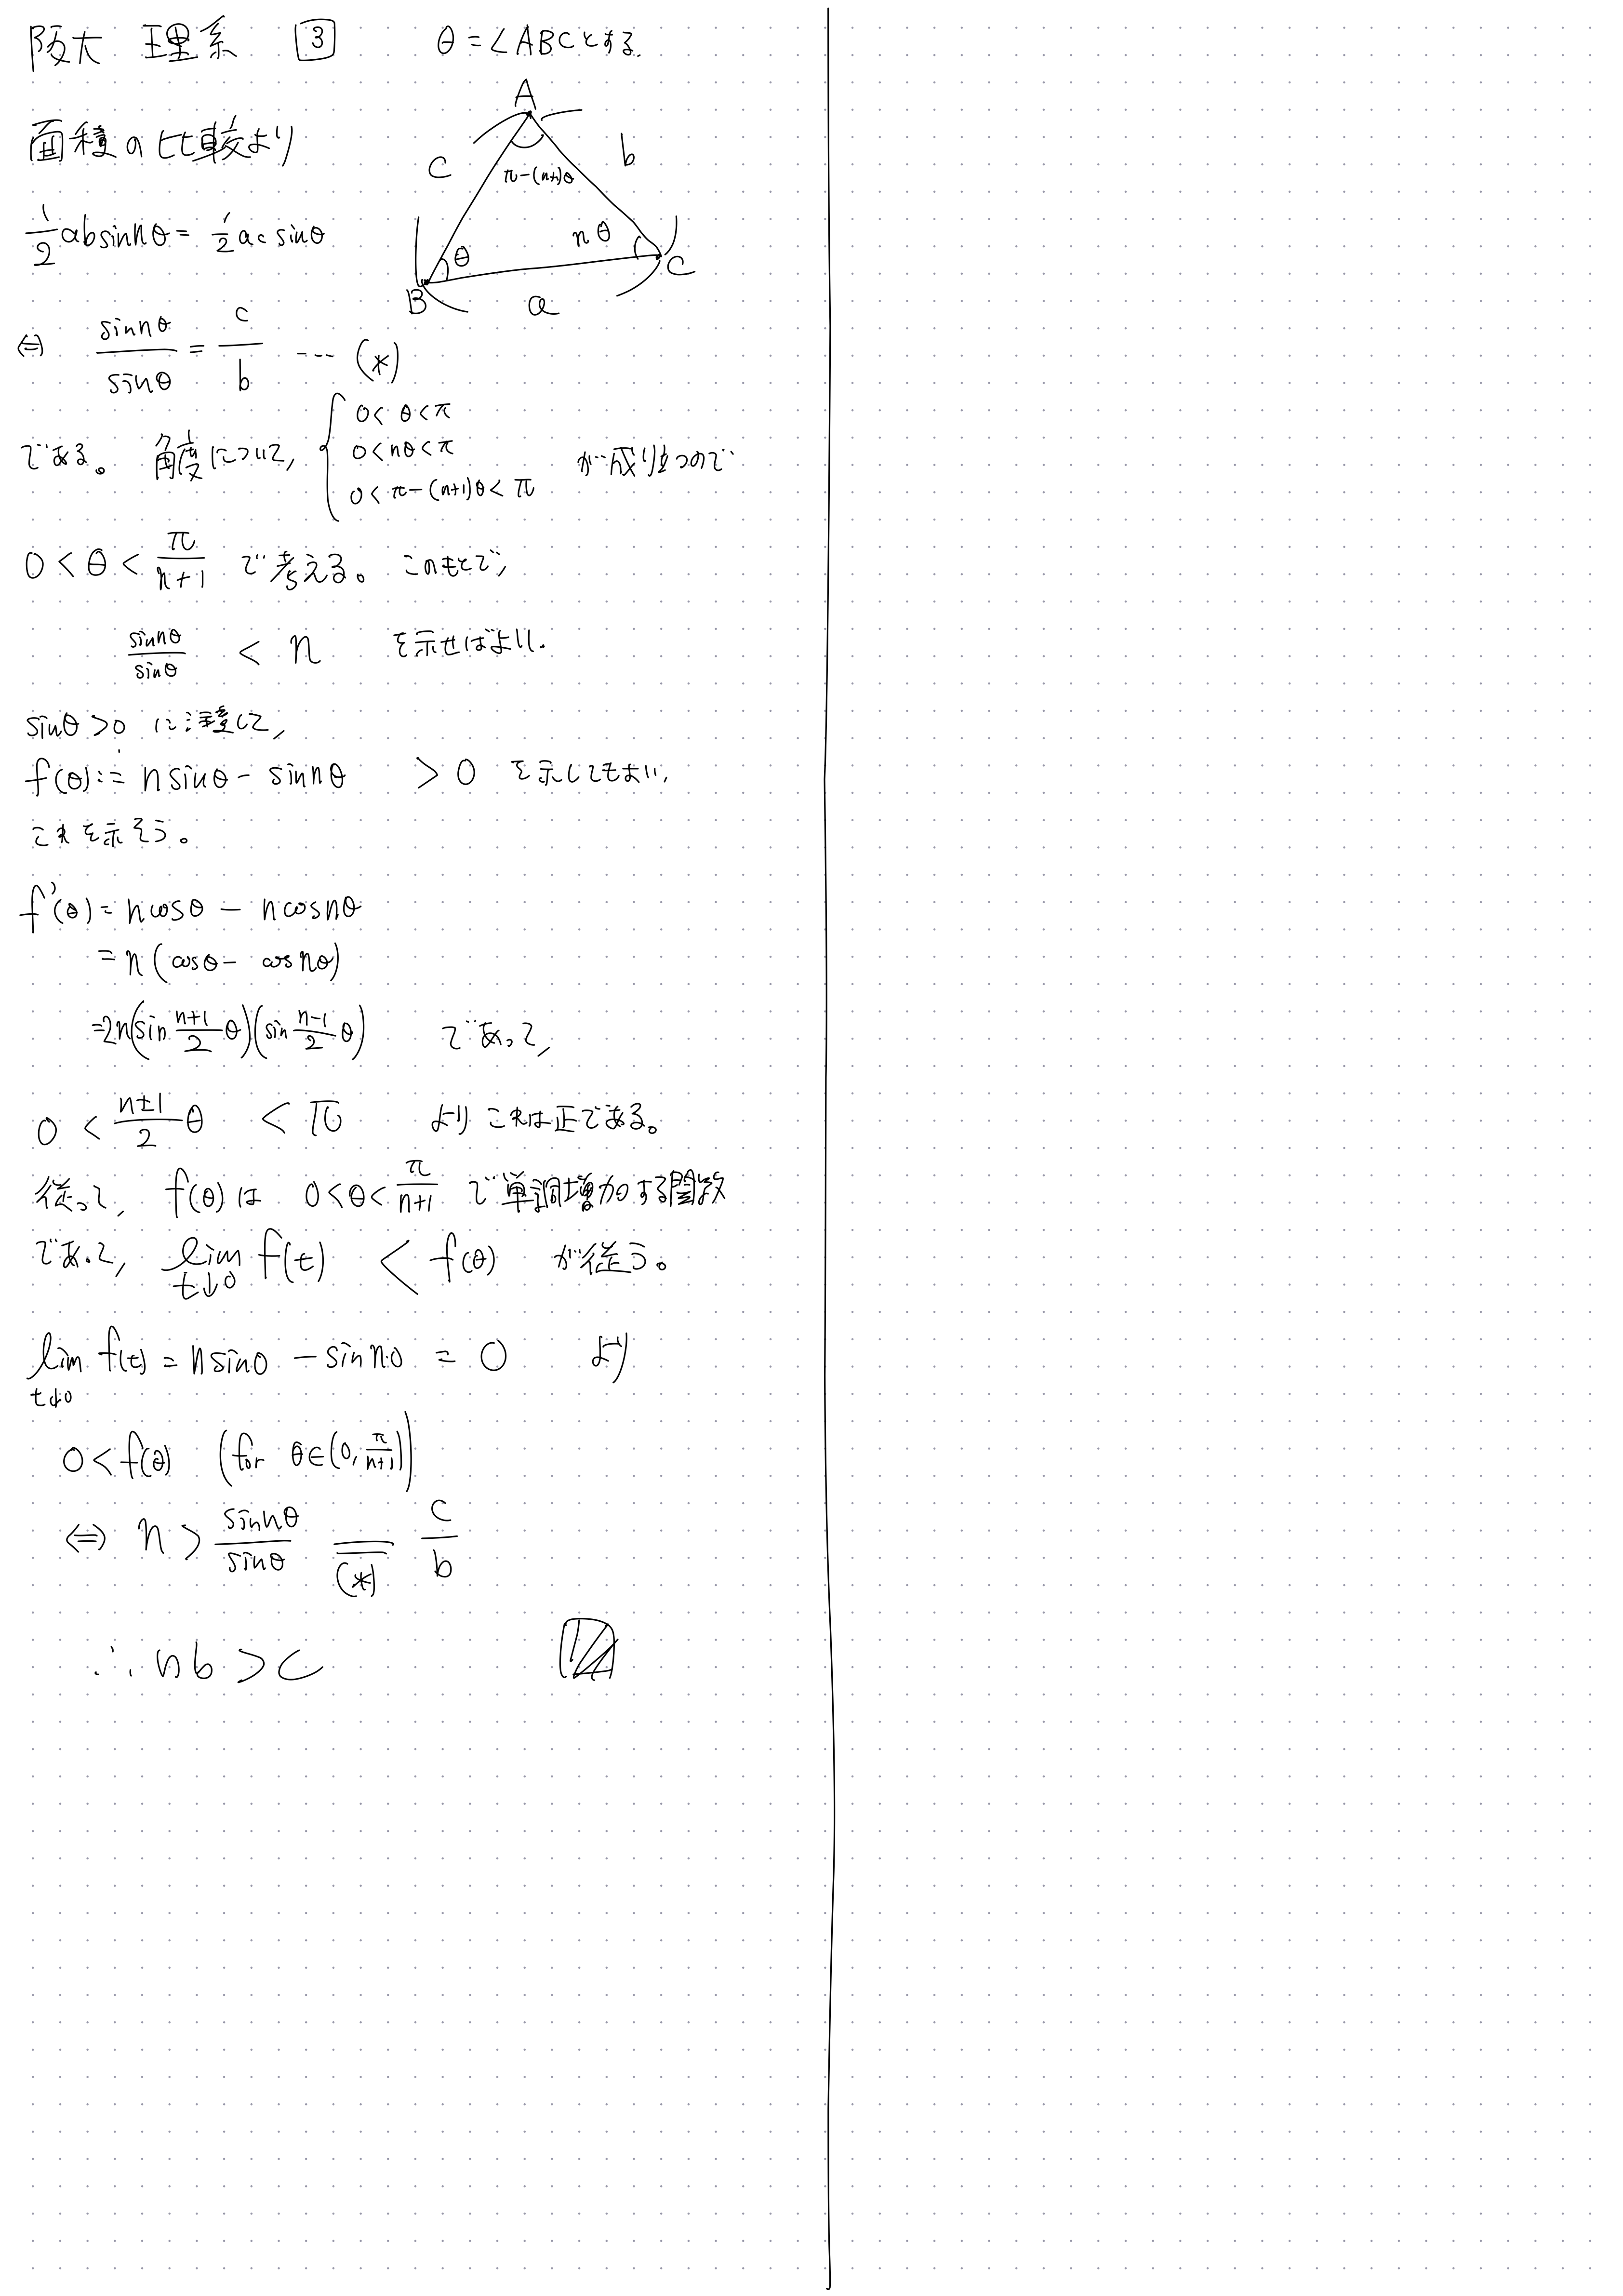 阪大 理系 3 θ=∠ABCとする.
A
面積の比較より
c b
π-(n+1)θ
1/2 ab sin nθ = 1/2 ac sinθ
θ nθ
B a C
⇔ sin nθ / sinθ = c/b ---- (*)
である。 角度について, { 0<θ<π
0<nθ<π
0<π-(n+1)θ<π が成り立つので
0<θ<π/(n+1) で考える。このもとで,
sin nθ / sinθ < n を示せばよい.
sinθ>0 に注意して,
f(θ):= n sinθ - sin nθ > 0 を示してもよい,
これを示そう。
f'(θ)= n cosθ - n cos nθ
= n (cosθ - cos nθ)
=2n(sin (n+1)/2 θ)(sin (n-1)/2 θ) であって,
0 < (n±1)/2 θ < π より これは正である。
従って, f(θ) は 0<θ<π/(n+1) で単調増加する関数
であって, lim t↓0 f(t) < f(θ) が従う。
lim t↓0 f(t) = n sin0 - sin n0 = 0 より
0<f(θ) (for θ∈(0, π/(n+1)))
⇔ n > sin nθ / sinθ = (*) c/b
∴ nb > c